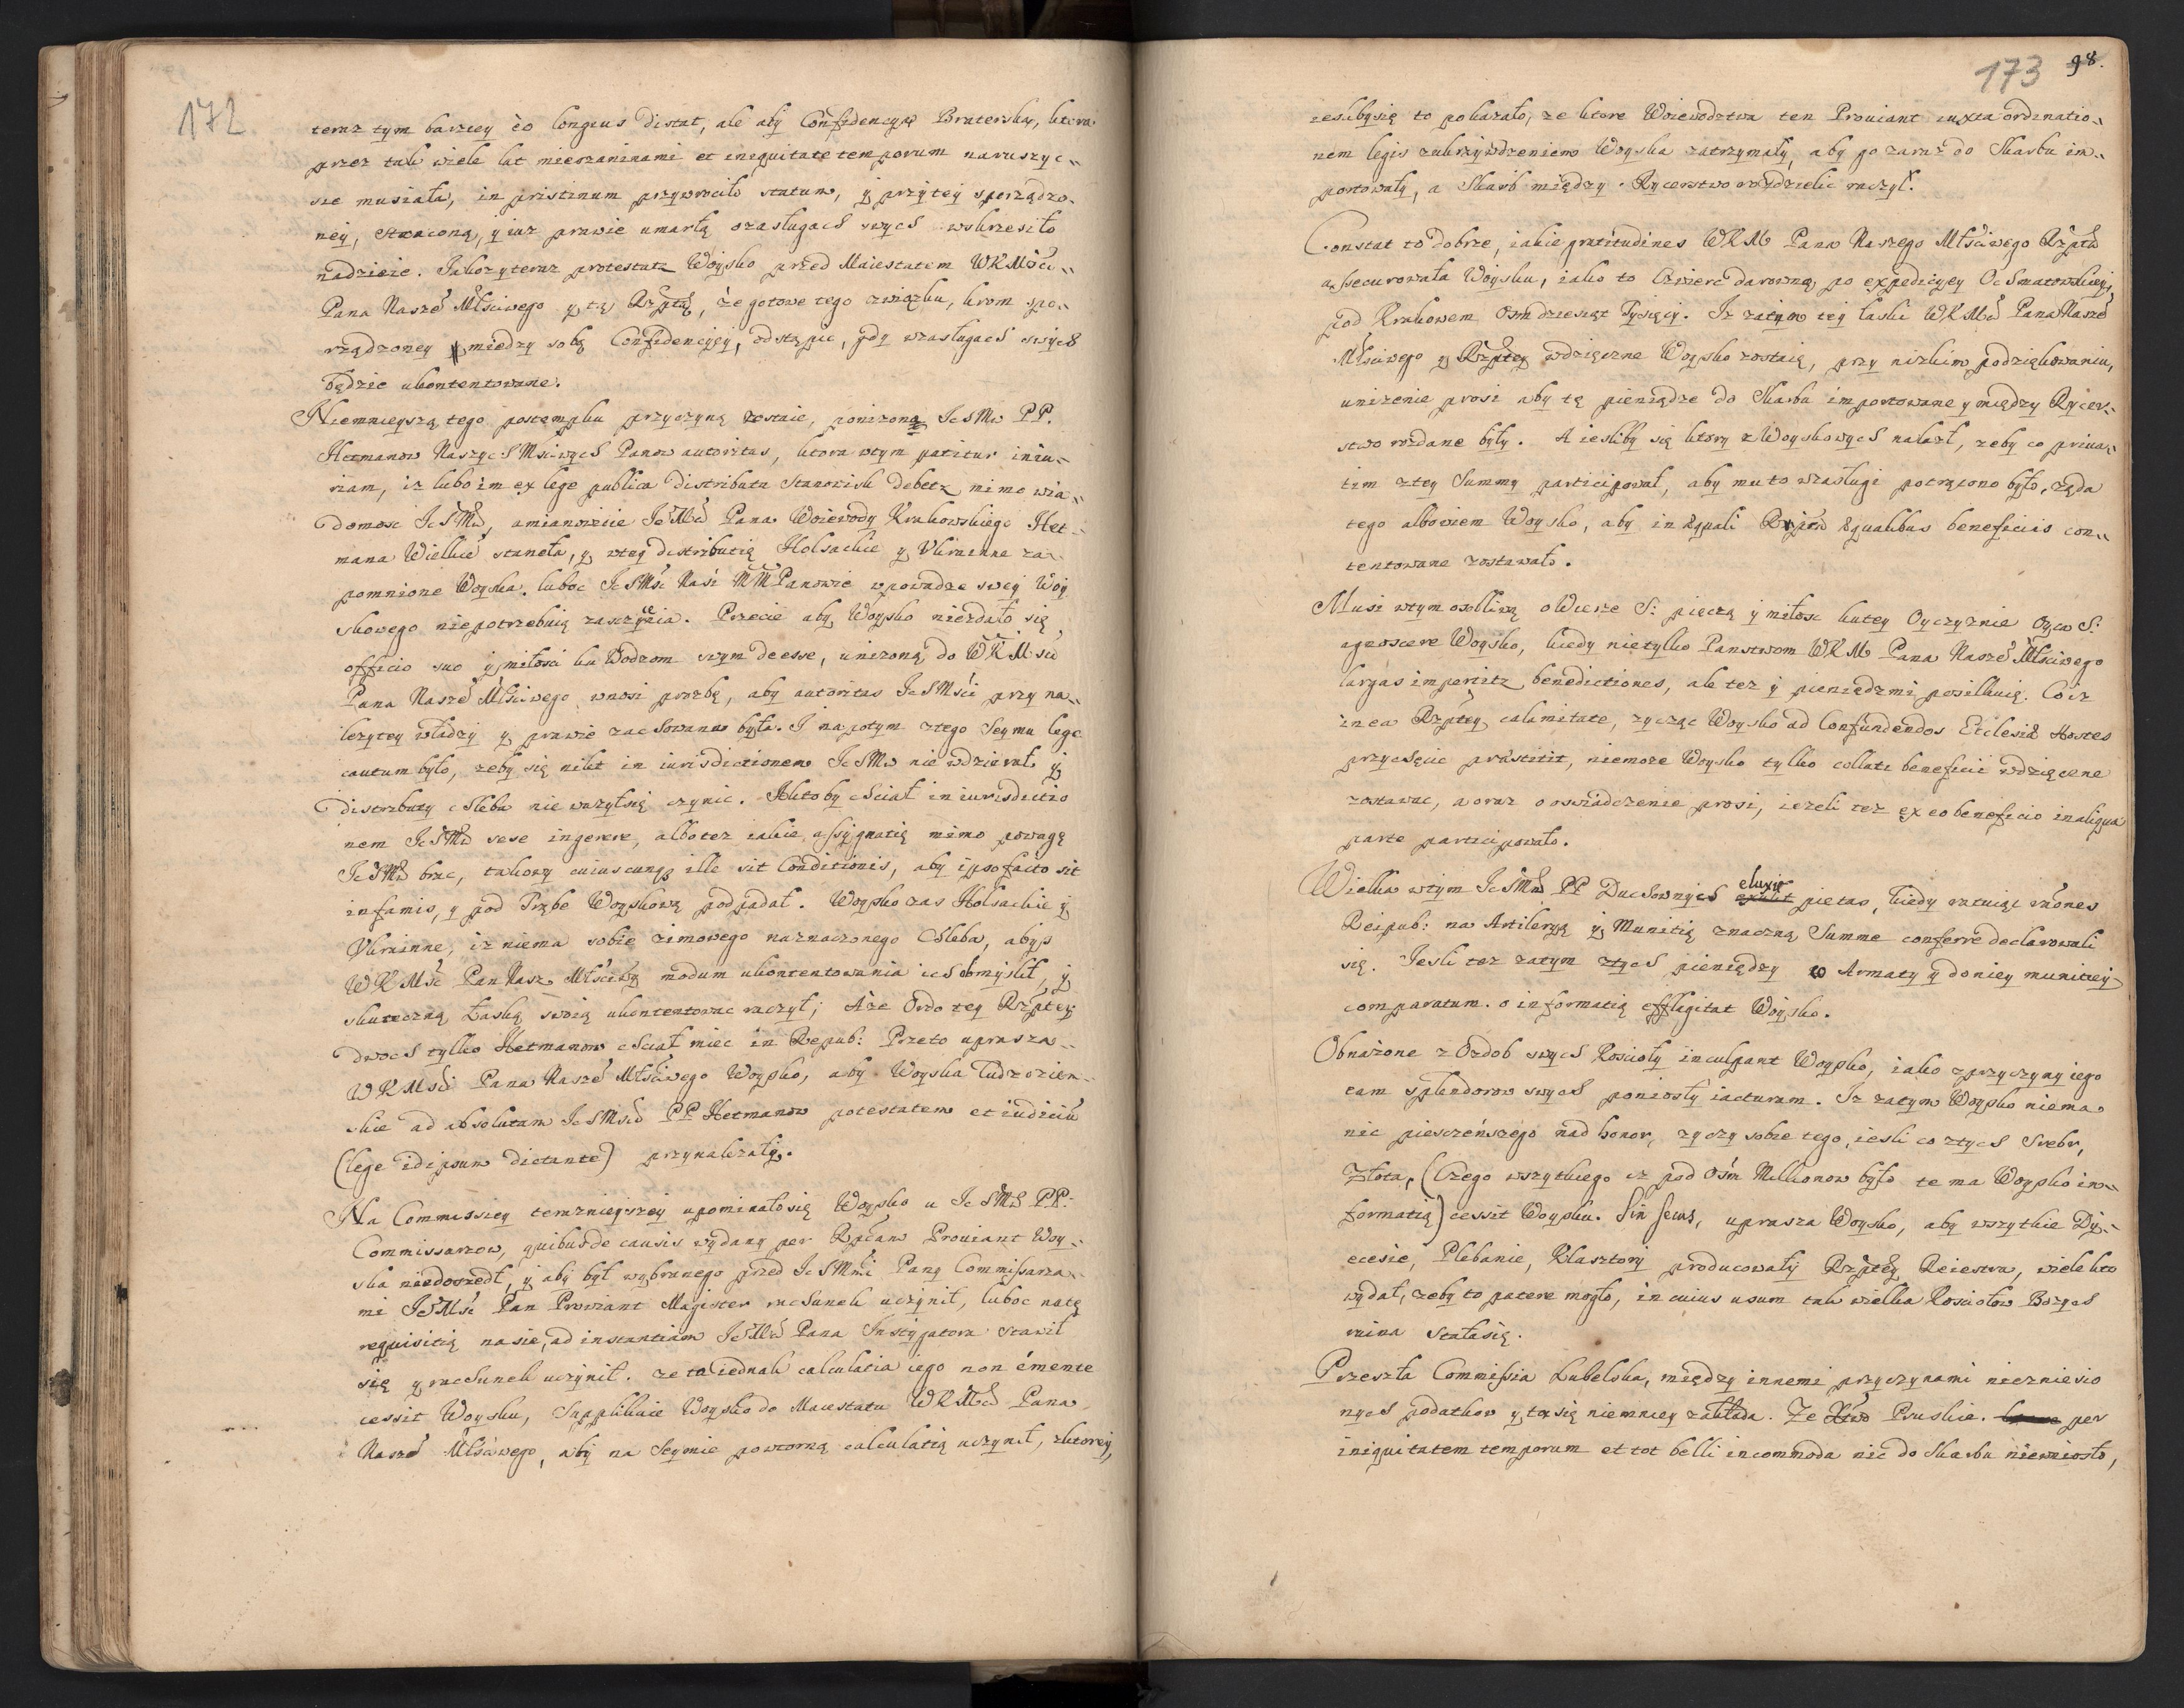 172
teraz tym barziey co longius distat, ale aby Confidencyą Braterską, ktora
przez tak wiele lat mieszaninami et iniquitate temporum naruszyc„
sie musiała, in pristinum przywrociło statum, y przytey sporządzo„
ney, straconą, y iuz prawie umarłą o zasługach swych wskrzesiło
nadzieie. Jakoz y teraz protestatr Woysko przed Maiestatem WKMsci„
Pana Nasze͠ Młsciwego y tą Rzptą, że gotowe tego związku, krom spo„
rządzoney między sobą Confidencyey, odstąpic, gdy w zasługach swych
będzie ukontentowane.
Niemnieyszą tego postempku przyczyną zostaie, poniżona Jch Mw PP.
Hetmanow Naszych Msciwych Panow autoritas, ktora w tym patitur iniu„
riam, iz lubo im ex lege publica distributa Stanowisk debetr mimo wia„
domosc Jch Mw, a mianowicie Je͠ Mci Pana Woiewody Krakowskiego Het„
mana Wielkie͠ staneła, y w tey distributią Holsackie y Ukrainne za„
pomnione Woyska. luboc Jch Msc Nasi MM Panowie w powadze swey Woy
skowego niepotrzebuią zaszczycenia. Przecie aby Woysko niezdało się
officio suo y miłosci ku Wodzom swym deesse, unizoną do WKMsci
Pana Nasze͠ Młsciwego wnosi prozbę, aby autoritas Jch Msci przy na„
lezytey władzy y prawie zachowana była. I napotym z tego Seymu lege
cautum było, zeby się nikt in iurisdictionem Jch Mw nie wdzierał y
distributy chleba nie wazył się czynic. Ktoby chciał in iurisdictio
nem Jch Mw sese ingerere, albo tez iakie assygnatią mimo powagę
Jch Mw brac, takowy cuiuscunq ille sit Conditionis, aby ipso facto sit
infamis, y pod Trąbe Woyskową podpadał. Woysko zas Holsackie y
Ukrainne, iz niema sobie zimowego naznaczonego Chleba, abys
WKMsc Pan Nasz Młsciwy modum ukontentowania ich obmyslił, y
skuteczną Łaską swoią ukontentowac raczył; Aże Ordo tey Rzptey
dwoch tylko Hetmanow chciał miec in Repub: Przeto uprasza„
WKMsci Pana Nasze͠ Młsciwego Woysko, aby Woyska Cudzoziem„
skie ad absolutam Jch Mscw PP Hetmanow potestatem et iudiciũ
(lege id ipsum dictante) przynalezały.
Na Commissiey teraznieyszey upominało się Woysko u Jch Mw PP.
Commissarzow, quibus de causis wydany per Rpcam Prouiant Woy„
ska niedoszedł, y aby był wybranego przed Jch Mmi Pany Commissarza„
mi Je͠ Msc Pan Prowiant Magister rachunek uczynił, luboc na tę
requisitią nasię, ad instantiam Je͠ Mci Pana Instygatora stawił
się y rachunek uczynił. ze ta iednak calculatia iego non é mente
cessit Woysku, Supplikuie Woysko do Maiestatu WKMci Pana
Nasze͠ Młsciwego, aby na Seymie powtorną calculatią uczynił, z ktorey,

173 98.
iesliby się to pokazało, ze ktore Woiewodztwa ten Prouiant iuxta ordinatio„
nem legis z ukrzywdzeniem Woyska zatrzymały, aby go zaraz do Skarbu im„
portowały, a Skarb między Rycerstwo rozdzielic raczył.
Constat to dobrze, iakie gratitudines WKM Pana Naszego Młsciwego Rzpta
assecurowała Woysku, iako to Cwierc darowną po expedicyey Ochmatowskiey,
pod Krakowem Osmdziesiąt Tysięcy. Iz zatym tey łaski WKMci Pana Nasze͠
Młsciwego y Rzptey wdzięczne Woysko zostaią, przy nizkim podziękowaniu,
unizenie prosi aby tę pieniądze do Skarbu importowane y między Rycer„
stwo rozdane były. A iesliby się ktory z Woyskowych nalazł, zeby co priua„
tim z tey Summy participował, aby mu to w zasługi potrącono było, żąda
tego albowiem Woysko, aby in æquali æqualibus beneficiis con„
tentowane zostawało.
Musi w tym osobliwą o Wierze S: pieczą y miłosc ku tey Oyczyznie Oyca S:
agnoscere Woysko, kiedy nietylko Panstwom WKM Pana Nasze͠ Młsciwego
largas impertitr benedictiones, ale tez y pieniędzmi posilkuią. Co iz
in ea Rzptey calamitate, zycząc Woysko ad Confundendos Ecclesiæ Hostes
przychęcie præstitit, niemoze Woysko tylko collati beneficii wdzięczne
zostawac, a oraz o oswiadczenie prosi, iezeli tez ex eo beneficio in aliqua
parte participowało.
Wielka w tym Jch Mw PP Duchownych eluxit pietas, kiedy ratuiąc rãones
Reipub: na Artileryą y Munitią znaczną Summe conferre declarowali
się. Jesli tez zatym z tych pieniędzy co Armaty y do niey munitiey
comparatum. o informatią efflagitat Woysko.
Obnażone z Ozdob swych Koscioły inculpant Woysko, iako z przyczyny iego
tam splendorow swych poniosły iacturam. Iz zatym Woysko niema
nic piesczeńszego nad honor, zyczy sobie tego, iesli co z tych Srebr,
Złota, (Czego wszytkiego iz pod Osm Millionow było te ma Woysko in„
formatią) cessit Woysku. Sin secus, uprasza Woysko, aby wszytkie Dy„
ecesie, Plebanie, Klasztory producowały Rzptey Reiestra, wiele kto
wydał, zeby to patere mogło, in cuius usum tak wielka Kosciołow Bozych
ruina stała się.
Przeszła Commissia Lubelska, między innemi przyczynami niezniesio
nych podatkow y tą się niemniey zakłada. Ze Xtwo Pruskie. per
iniquitatem temporum et tot belli incommoda nic do Skarbu niewniosło,